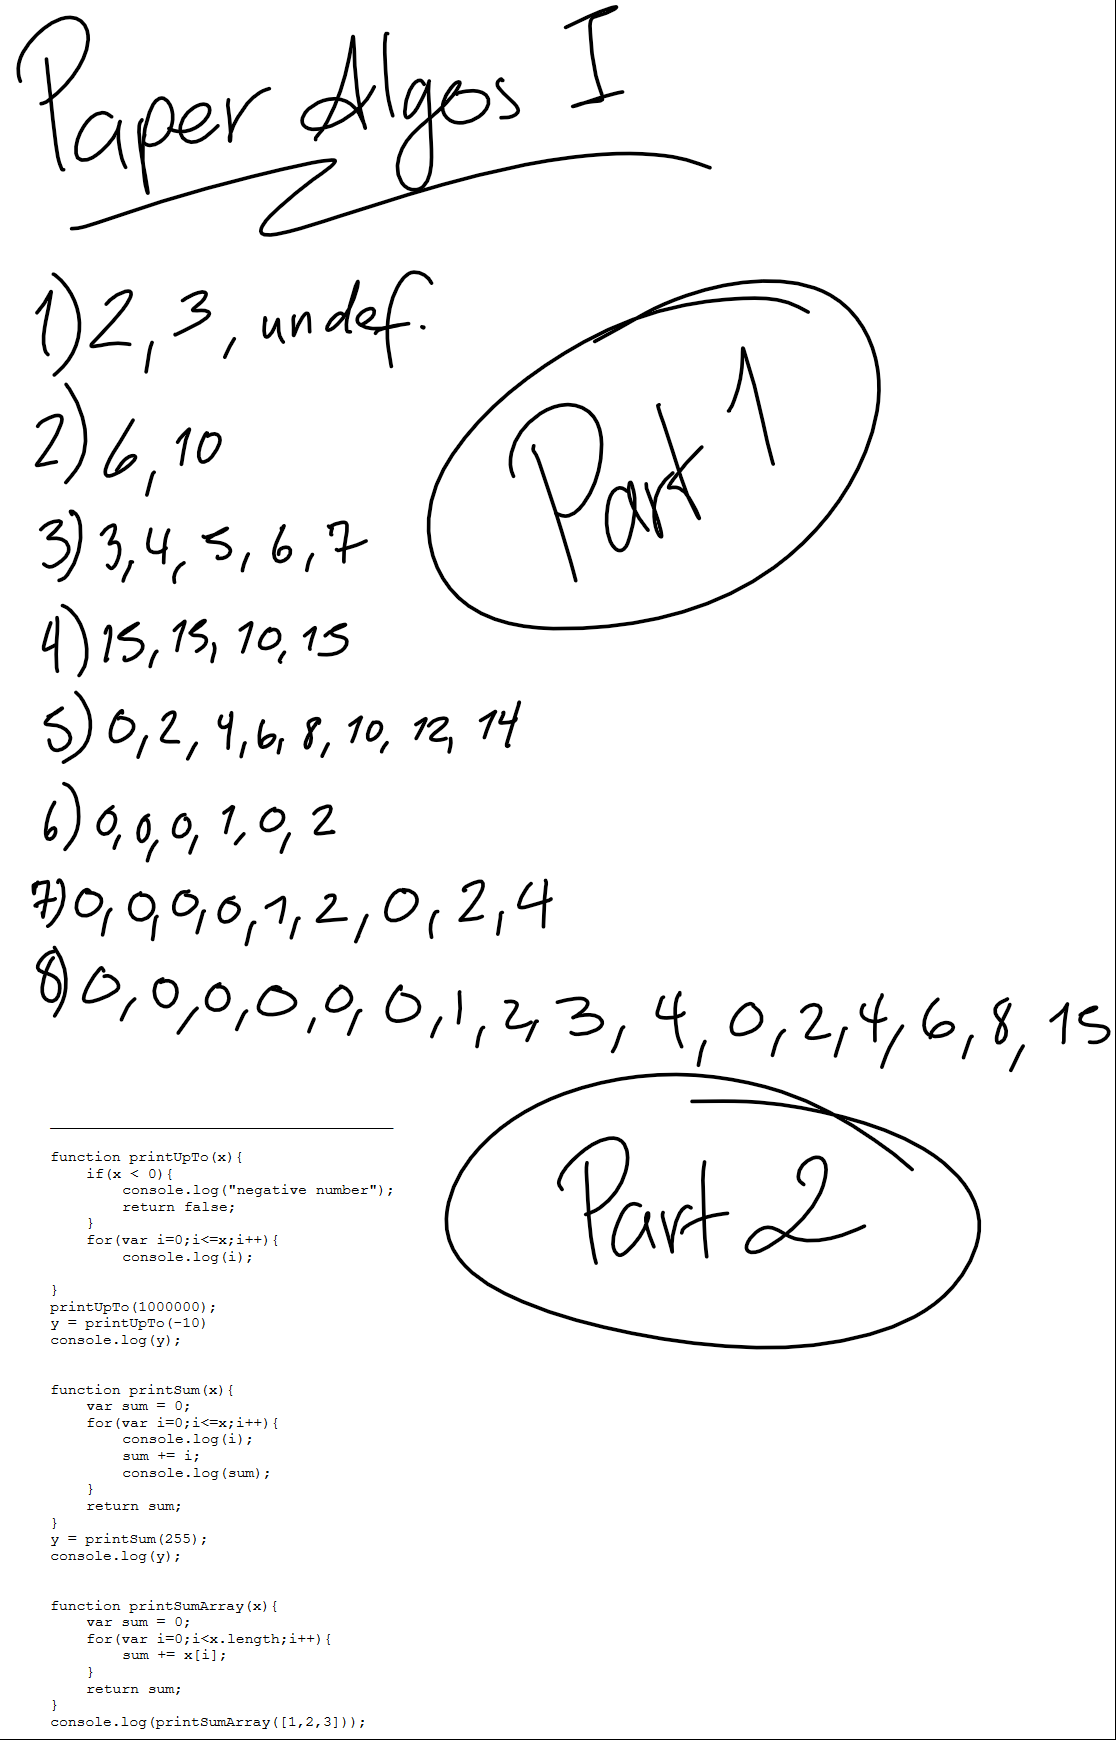 Paper Algos I
1) 2, 3, undef.
Part 1
2) 6, 10
3) 3, 4, 5, 6, 7
4) 15, 15, 10, 15
5) 0, 2, 4, 6, 8, 10, 12, 14
6) 0, 0, 0, 1, 0, 2
7) 0, 0, 0, 0, 1, 2, 0, 2, 4
8) 0, 0, 0, 0, 0, 0, 1, 2, 3, 4, 0, 2, 4, 6, 8, 15
Part 2
function printUpTo(x){
    if(x < 0){
        console.log("negative number");
        return false;
    }
    for(var i=0;i<=x;i++){
        console.log(i);
}
printUpTo(1000000);
y = printUpTo(-10)
console.log(y);
function printSum(x){
    var sum = 0;
    for(var i=0;i<=x;i++){
        console.log(i);
        sum += i;
        console.log(sum);
    }
    return sum;
}
y = printSum(255);
console.log(y);
function printSumArray(x){
    var sum = 0;
    for(var i=0;i<x.length;i++){
        sum += x[i];
    }
    return sum;
}
console.log(printSumArray([1,2,3]));